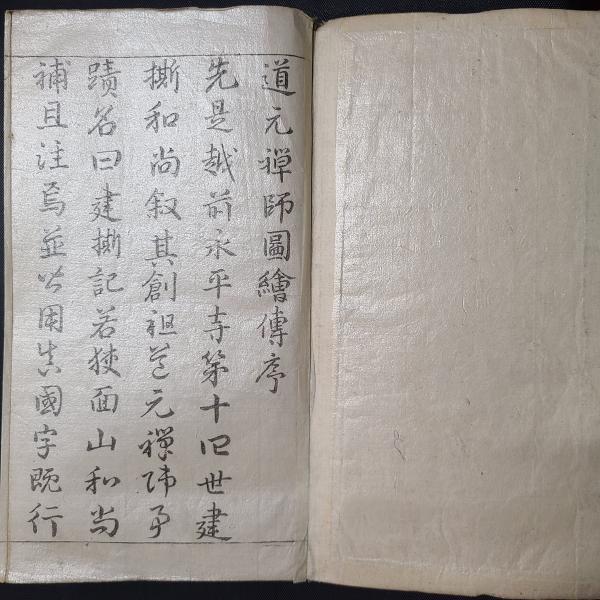 道元禪師圖繪傳序
先是越前永平寺第十四世建
撕和尚叙其創祖道元禪師事
蹟名曰建撕記若狹面山和尚
補且注焉並皆用吾國字既行